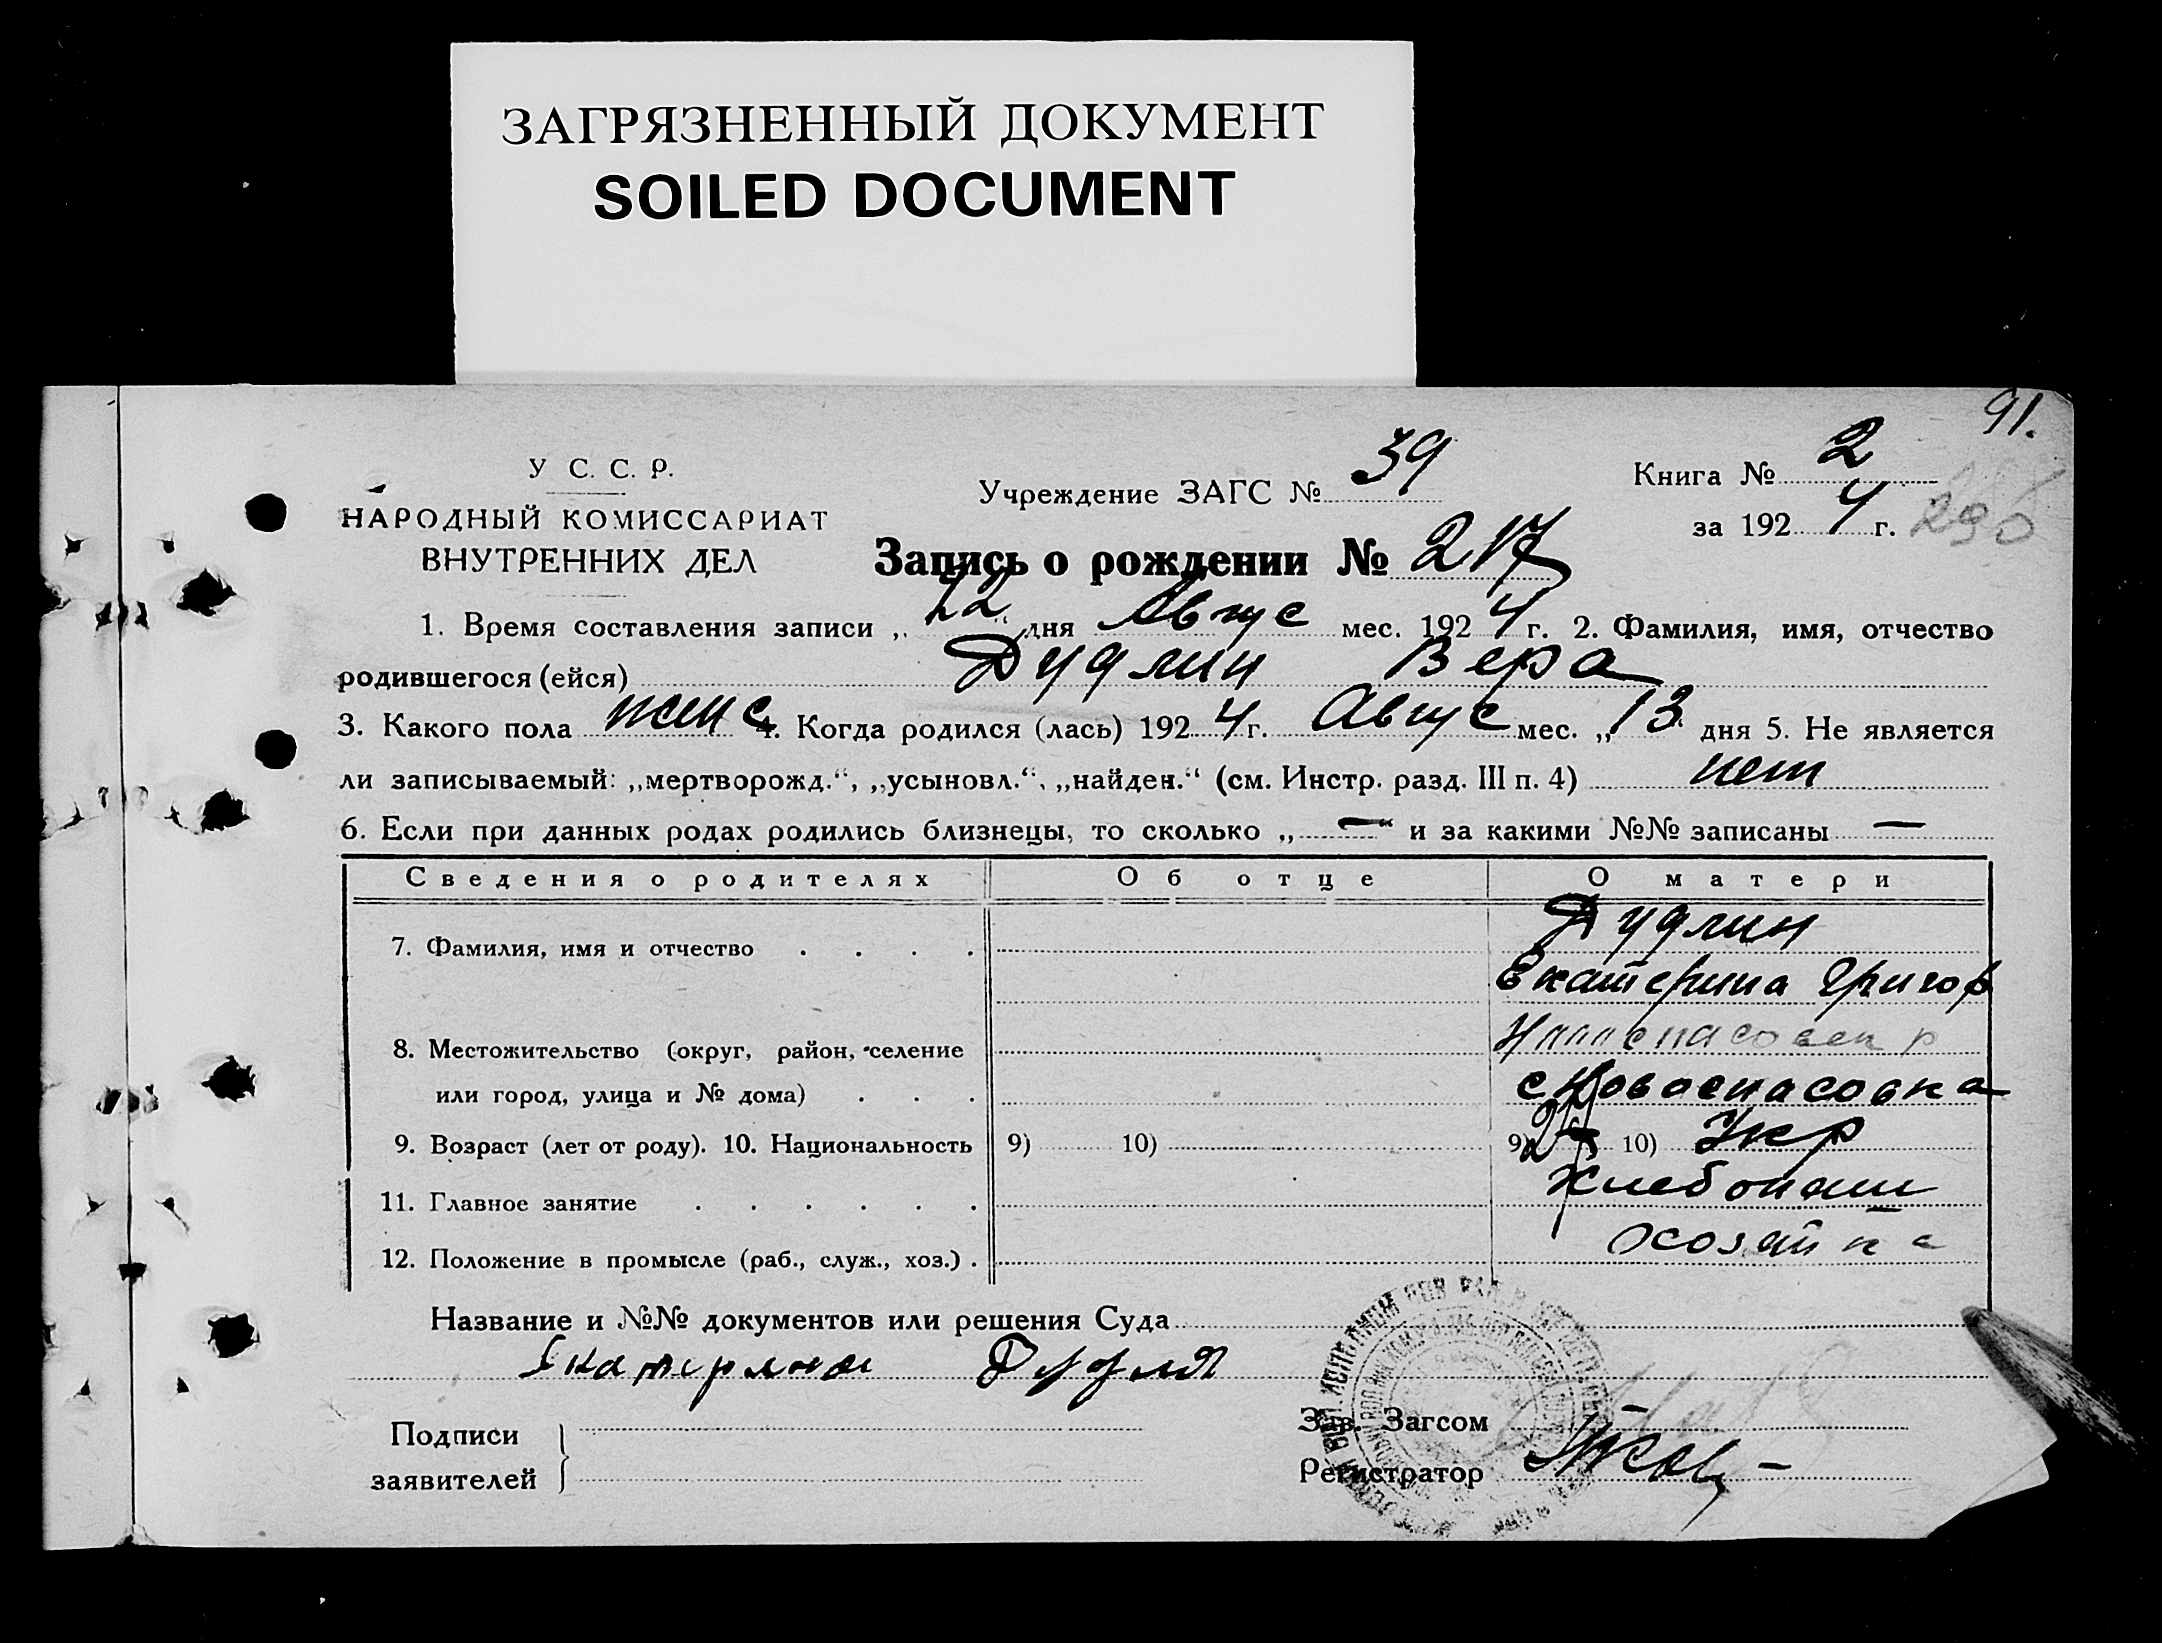 ЗАГРЯЗНЕННЫЙ ДОКУМЕНТ
SOILED DOCUMENT
91.
У С. С. Р.
НАРОДНЫЙ КОМИССАРИАТ
ВНУТРЕННИХ ДЕЛ
Учреждение ЗАГС № 39
Книга № 2
за 192 4 г. 290
Запись о рождении № 217
1. Время составления записи „ 22 “ дня Авгус мес. 192 4 г. 2. Фамилия, имя, отчество
родившегося (ейся) Дудлин Вера
3. Какого пола женс 4. Когда родился (лась) 192 4 г. Авгус мес. „ 13 дня 5. Не является
ли записываемый: „мертворожд.“, „усыновл.“, „найден.“ (см. Инстр. разд. III п. 4) нет
6. Если при данных родах родились близнецы, то сколько „ — “ и за какими №№ записаны —
Сведения о родителях Об отце О матери
7. Фамилия, имя и отчество . . . . Дудлин
Екатерина Григор
8. Местожительство (округ, район, селение
или город, улица и № дома) . . . с Новоспасовка
9. Возраст (лет от роду). 10. Национальность 9) 10) 9) 10) Укр
11. Главное занятие . . . . . . Хлебопаш
12. Положение в промысле (раб., служ., хоз.) . хозяйка
Название и №№ документов или решения Суда
Подписи
заявителей
Зав. Загсом
Регистратор